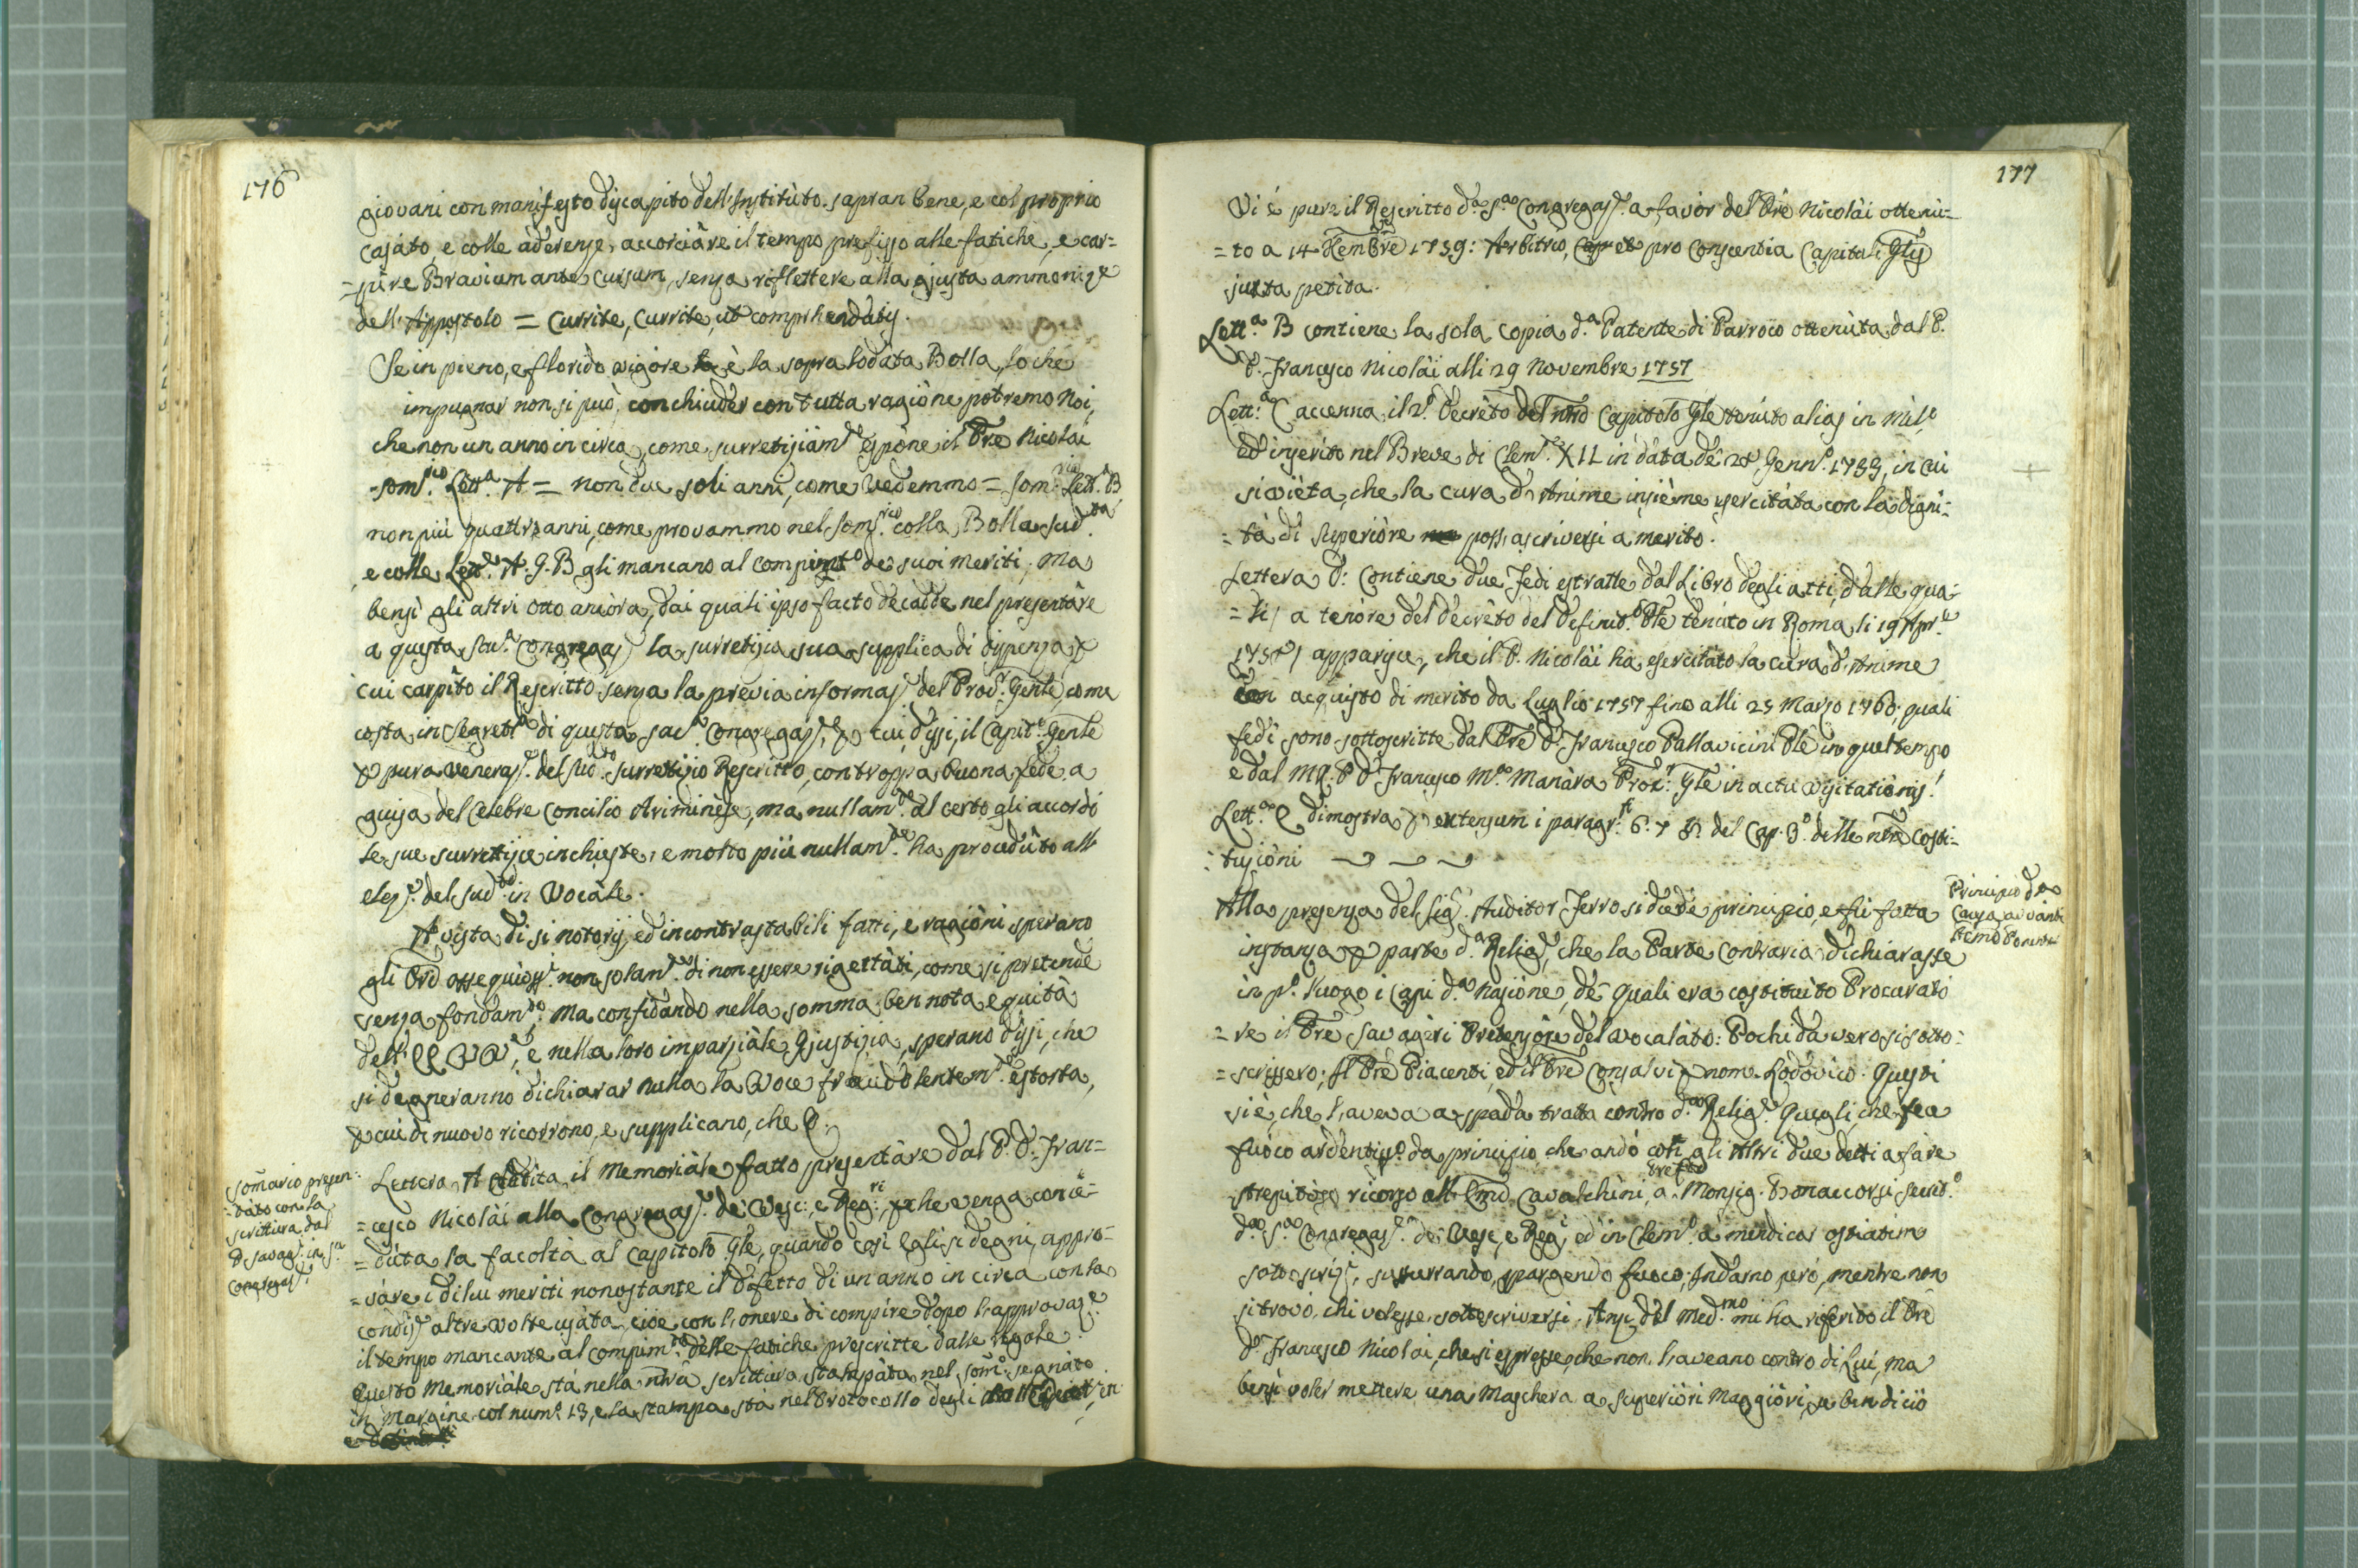 176
giovani con manifesto discapito dell'Instituto. sapran bene, e col proprio
Casato, e colle aderenze, accorciàre il tempo prefisso alle fatiche, e car=
=pire Bravium ante cursum, senza riflettere alla giusta ammoniz.e
dell'Appostolo = Currite, Currite, ut comprhendatis.
Se in pieno, e florido vigore è la sopra lodata Bolla, lo che
impugnar non si può, conchiuder con tutta ragiòne potremo Noi,
che non un anno in circa, come surretiziàm.e espòne il Pre Nicolài
som.rio Lett.a A = non due soli anni, come vedemmo = som.rio Lett.a B
non più quattro anni, come provammo nel som.rio colla Bolla sud.ta
e colle Lett.e A. G. B gli mancano al compim.to de suoi meriti; ma
bensì gli altri otto ancòra, dai quali ipso facto decadde nel presentàre
a questa Congregaz. la surretizia sua supplica di dispensa,
cui carpito il Rescritto senza la previa informaz.e del Proc.r Gente, come
costa in Segret.a di questa sac.a Congregaz., cui, dissi, il Capit.o Gente
pura veneraz.e del sud.to surretizio Rescritto, con troppa buona fede a
guisa del Celebre Concilio Ariminèse, ma nullam.te al certo gli accordò
le sue surretizie inchieste, e molto più nullam.te ha proceduto all'
elez.e del sud.to in Vocale.
A vista di si notorij, ed incontrastabili fatti, e ragiòni sperano
gli Ori ossequioss.i non solam.te di non essere rigettàti, come si pretende
senza fondam.to, ma confidando nella somma ben nota equità
dell' EE VV, e nella loro imparziàle Giustizia, sperano dissi, che
si degneranno dichiarar nulla la Voce fraudolentem.te estorta,
cui di nuovo ricorrono, e supplicano, che
somàrio presen:
=tàto con la
scrittura dal
P. Savag.i in S.a
Congregaz.e
Lettera A il Memoriàle fatto presentàre dal P. D. Fran=
=cesco Nicolài alla Congregaz.e de Vesc:, e Reg:ri, che venga conce=
=dùta la facoltà al Capitolo Gle, quando così Egli si degni, appro=
=vàre i di lui meriti nonostante il difetto di un anno in circa con la
condiz.e altre volte usàta, cioè con l'onere di compire dopo l'approvaz.e
il tempo mancante al compim.to delle fatiche prescritte dalle regole.
Questo Memoriàle stà nella nrâ scrittura stampàta nel som.o segnàto
in margine col num.o 13, e la stampa stà nel Protocollo degli
177
Vi è pure il Rescritto d.a S.a Congregaz.e a favòr del Pre Nicolài ottenù=
=to a 14 Xembre 1759: Arbitrio, et pro Conscientia Capituli Glis
juxta petita.
Lett.a B contiene la sola copia d.a Patente di Parroco ottenùta dal P.
D. Francesco Nicolài alli 29 Novembre 1757
Lett.a C accenna il 2.o Decrèto del nro Capitolo Gle tenùto alias in Mil.o
ed inserito nel Breve di Clem.e XII in dàta de 28 Genn.o 1733, in cui
si vièta, che la cura d'Anime insième esercitàta con la digni=
=tà di Superiòre poss'ascriversi a merito.
Lettera D: Contiene due Fedi estratte dal Libro degli atti, dalle qua=
=li, a tenòre del decrèto del Definit.o Gle tenùto in Roma li 19 Apr.e
1758, apparisce, che il P. Nicolài ha esercitàto la cura d'Anime
con acquisto di merito da Luglio 1757 fino alli 25 Marzo 1760; quali
fedi sono sottoscritte dal Pre D. Francesco Pallavicini Ple in quel tempo
e dal MR. P. D. Francesco M.a Manàra Proc.r Gle in actu visitatiònis.
Lett.a E dimostra extensum i paragr.fi 6. 7. 8. del Cap. 3.o delle nre Costi=
=tuziòni
Principio d.a
Causa avanti
l'Emo Ponente
Alla presenza del Sig.r Auditor Ferro si diede principio, e fù fatta
instanza parte d.a Relig.e, che la Parte Contraria dichiarasse
in p.o luogo i Capi d.a Naziòne, de quali era costituìto Procurato
=re il Pre Savagèri Pretensòre del Vocalàto: Pochi da vero si sotto=
=scrissero; Il Pre Piacenti, ed il Pre Consalvi nom. Lodovico. Questi
si è, che l'aveva a spada tratta contro d.a Relig.e Quegli, che fea
fuoco ardentiss.o da principio, che andò con gli altri due detti a fàre
strepitoso ricorso all'Emo Cavalchini, a Monsig. Bonaccorsi Secret.o
d.a S.a Congregaz.e de Vesc:, e Reg:, ed in Clem.o a mendicar ostiatim
sotoscriz.i, susurrando, spargendo fuoco; Indarno però, mentre non
si trovò, chi volesse sottoscriversi. Anzi del Med.mo mi ha riferito il Pre
D. Francesco Nicolài, che si espresse, che non l'aveano contro di Lui, ma
bensì voler mettere una Maschera a Superiòri Maggiòri, se ben di ciò